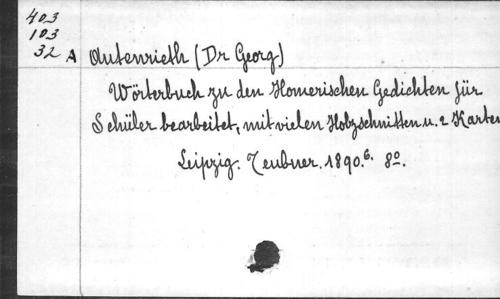 403
103
32 A Autenrieth (Dr Georg)
Wörterbuch zu den Homerischen Gedichten für
Schüler bearbeitet, mit vielen Holzschnitten u. 2 Karten
Leipzig. Teubner. 1890.⁶ 8º.